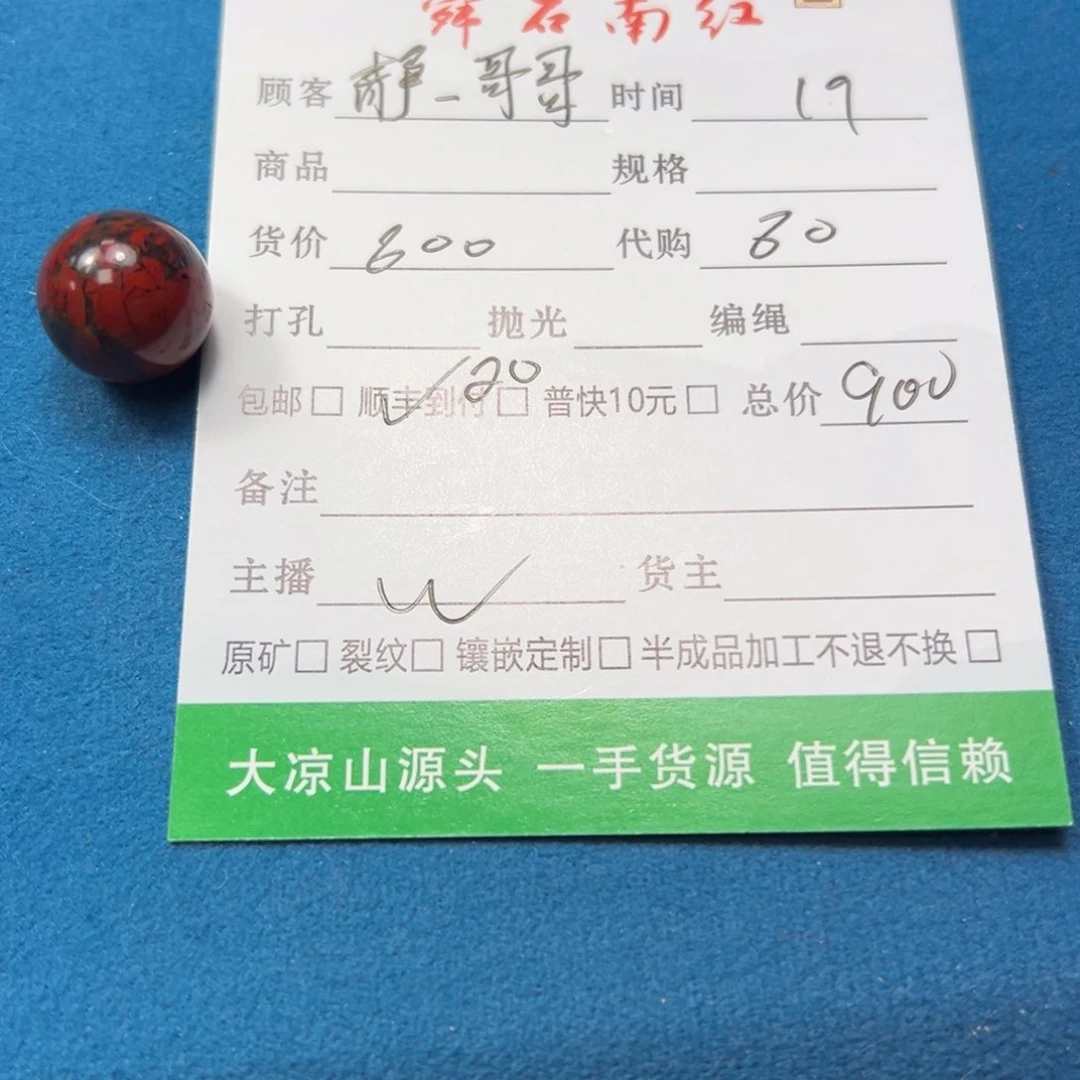 舜石南红
顾客 静_哥哥 时间 19
商品 规格
货价 800 代购 80
打孔 抛光 编绳
包邮□ 顺丰到付□ 20 普快10元□ 总价 900
备注
主播 W 货主
原矿□ 裂纹□ 镶嵌定制□ 半成品加工不退不换□
大凉山源头 一手货源 值得信赖